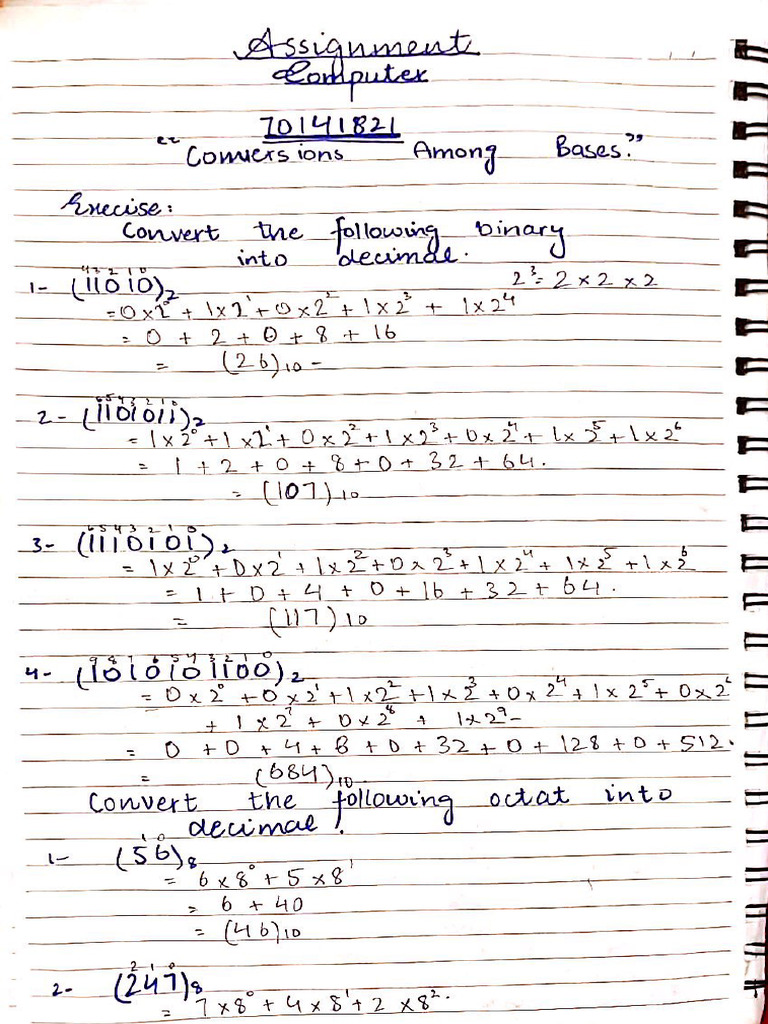 Assignment
Computer
70141821
"Conversions Among Bases."
Execise:
Convert the following binary
into decimal.
4 3 2 1 0
1- (11010)₂ 2³= 2 × 2 × 2
= 0×2⁰ + 1×2¹ + 0×2² + 1×2³ + 1×2⁴
= 0 + 2 + 0 + 8 + 16
= (26)₁₀ -
6 5 4 3 2 1 0
2- (1101011)₂
= 1×2⁰ + 1×2¹ + 0×2² + 1×2³ + 0×2⁴ + 1×2⁵ + 1×2⁶
= 1 + 2 + 0 + 8 + 0 + 32 + 64.
= (107)₁₀
6 5 4 3 2 1 0
3- (1110101)₂
= 1×2⁰ + 0×2¹ + 1×2² + 0×2³ + 1×2⁴ + 1×2⁵ + 1×2⁶
= 1 + 0 + 4 + 0 + 16 + 32 + 64.
= (117)10
9 8 7 6 5 4 3 2 1 0
4- (1010101100)₂
= 0×2⁰ + 0×2¹ + 1×2² + 1×2³ + 0×2⁴ + 1×2⁵ + 0×2⁶
+ 1×2⁷ + 0×2⁸ + 1×2⁹ -
= 0 + 0 + 4 + 8 + 0 + 32 + 0 + 128 + 0 + 512.
= (684)₁₀
Convert the following octat into
decimal.
1 0
1- (56)₈
= 6×8⁰ + 5×8¹
= 6 + 40
= (46)₁₀
2 1 0
2- (247)₈
= 7×8⁰ + 4×8¹ + 2×8².